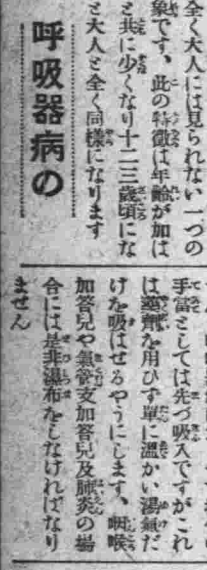 全く大人には見られない一つの
象です、此の特徴は年齢が加は
と共に少くなり十二三歳頃にな
と大人と全く同様になります
呼吸器病の
手當としては先づ吸入ですがこれ
は藥劑を用ひず單に溫かい湯氣だ
けを吸はせるやうにします、咽喉
加答兒や氣管支加答兒及肺炎の場
合には是非濕布をしなければなり
ません